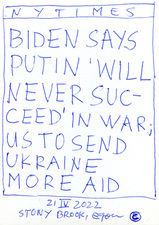 NYTIMES
BIDEN SAYS
PUTIN 'WILL
NEVER SUC-
CEED' IN WAR;
US TO SEND
UKRAINE
MORE AID
21 IV 2022
STONY BROOK,